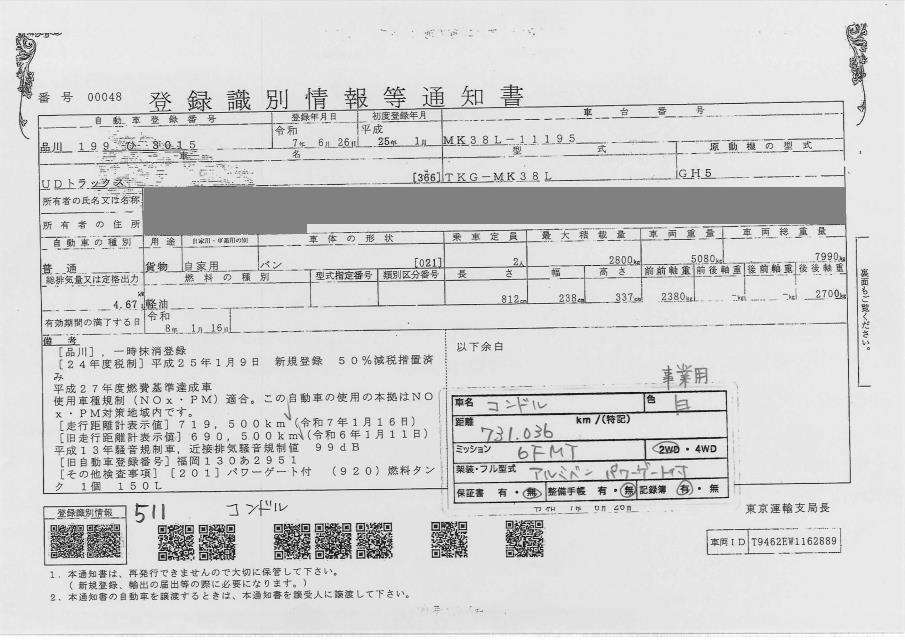 番号 00048 登録識別情報等通知書
自動車登録番号 登録年月日 初度登録年月 車台番号
品川 199 ひ 3015 令和 7年 6月26日 平成 25年 1月 MK38L-11195
車名 型式 原動機の型式
UDトラックス [366] TKG-MK38L GH5
所有者の氏名又は名称
所有者の住所
自動車の種別 用途 自家用・事業用の別 車体の形状 乗車定員 最大積載量 車両重量 車両総重量
普通 貨物 自家用 バン [021] 2人 2800kg 5080kg 7990kg
総排気量又は定格出力 燃料の種別 型式指定番号 類別区分番号 長さ 幅 高さ 前前軸重 前後軸重 後前軸重 後後軸重
4.67L 軽油 812cm 238cm 337cm 2380kg -kg -kg 2700kg
有効期間の満了する日 令和 8年 1月16日
裏面もご覧ください。
備考
[品川],一時抹消登録
[24年度税制]平成25年1月9日 新規登録 50%減税措置済
み
平成27年度燃費基準達成車
使用車種規制(NOx・PM)適合。この自動車の使用の本拠はNO
x・PM対策地域内です。
[走行距離計表示値]719,500km(令和7年1月16日)
[旧走行距離計表示値]690,500km(令和6年1月11日)
平成13年騒音規制車,近接排気騒音規制値 99dB
[旧自動車登録番号]福岡130あ2951
[その他検査事項][201]パワーゲート付 (920)燃料タン
ク 1個 150L
以下余白
事業用
車名 コンドル 色 白
距離 731.036 km/(特記)
ミッション 6FMT 2WD・4WD
架装・フル型式 アルミバン パワーゲート付
保証書 有・無 整備手帳 有・無 記録簿 有・無
登録識別情報 511 コンドル
東京運輸支局長
車両ID T9462EW1162889
1.本通知書は、再発行できませんので大切に保管して下さい。
(新規登録、輸出の届出等の際に必要になります。)
2.本通知書の自動車を譲渡するときは、本通知書を譲受人に譲渡して下さい。